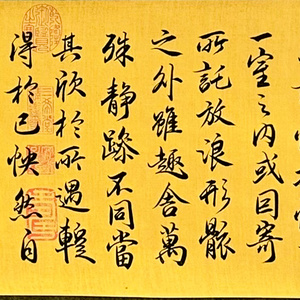 一室之內或因寄
所託放浪形骸
之外雖趣舍萬
殊靜躁不同當
其欣於所遇蹔
得於己怏然自